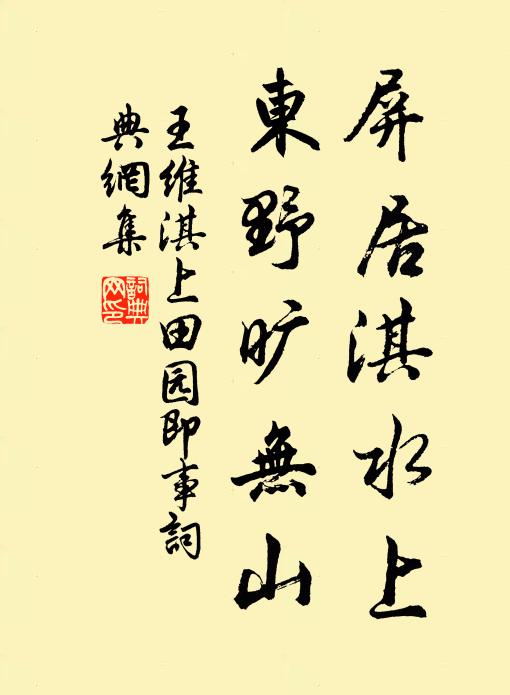 屏居淇水上
東野旷無山
王維淇上田园即事詞
典網集
詞典
网印